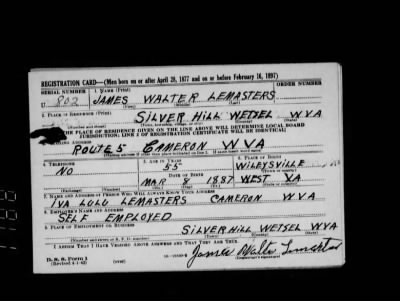 REGISTRATION CARD—(Men born on or after April 28, 1877 and on or before February 16, 1897)
SERIAL NUMBER 1. NAME (Print) ORDER NUMBER
U 802 JAMES WALTER LEMASTERS
(First) (Middle) (Last)
2. PLACE OF RESIDENCE (Print)
SILVER HILL WETSEL W.VA
(Number and street) (Town, township, village, or city) (County) (State)
[THE PLACE OF RESIDENCE GIVEN ON THE LINE ABOVE WILL DETERMINE LOCAL BOARD
JURISDICTION; LINE 2 OF REGISTRATION CERTIFICATE WILL BE IDENTICAL]
MAILING ADDRESS
ROUTE 5 CAMERON W VA
4. TELEPHONE 5. AGE IN YEARS 6. PLACE OF BIRTH
NO 55 WILEYSVILLE
DATE OF BIRTH
MAR 8 1887 WEST VA
7. NAME AND ADDRESS OF PERSON WHO WILL ALWAYS KNOW YOUR ADDRESS
IVA LULU LEMASTERS CAMERON W VA
8. EMPLOYER'S NAME AND ADDRESS
SELF EMPLOYED
9. PLACE OF EMPLOYMENT OR BUSINESS
SILVER HILL WETSEL W VA
(Number and street or R. F. D. number) (Town) (County) (State)
I AFFIRM THAT I HAVE VERIFIED ABOVE ANSWERS AND THAT THEY ARE TRUE.
D. S. S. Form 1
(Revised 4-1-42) (over)
James Walter Lemasters
(Registrant's signature)